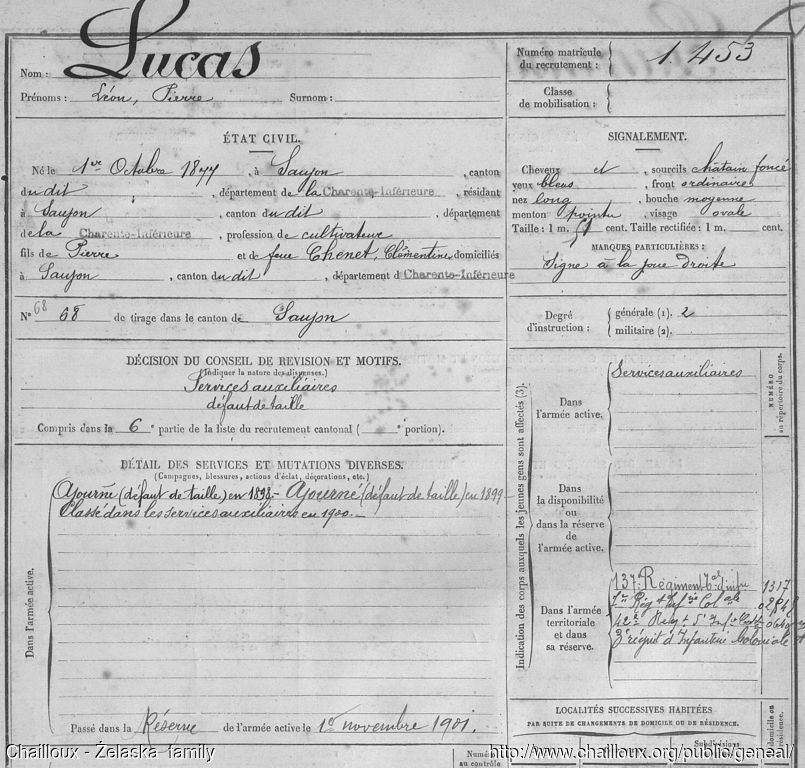 Nom : Lucas
Prénoms : Léon, Pierre Surnom :
Numéro matricule
du recrutement : 1.453
Classe
de mobilisation :
ÉTAT CIVIL.
Né le 1er Octobre 1877, à Saujon, canton
du dit, département de la Charente-Inférieure, résidant
à Saujon, canton du dit, département
de la Charente-Inférieure, profession de cultivateur
fils de Pierre et de feue Chenet, Clémentine, domiciliés
à Saujon, canton du dit, département d Charente-Inférieure
SIGNALEMENT.
Cheveux et, sourcils châtain foncé
yeux bleus, front ordinaire
nez long, bouche moyenne
menton pointu, visage ovale
Taille : 1 m. 51 cent. Taille rectifiée : 1 m. cent.
MARQUES PARTICULIÈRES :
Signe à la joue droite
N° 68 68 de tirage dans le canton de Saujon
Degré
d'instruction :
générale (1). 2
militaire (2).
DÉCISION DU CONSEIL DE REVISION ET MOTIFS.
(Indiquer la nature des dispenses.)
Services auxiliaires
défaut de taille
Compris dans la 6e partie de la liste du recrutement cantonal ( e portion).
DÉTAIL DES SERVICES ET MUTATIONS DIVERSES.
(Campagnes, blessures, actions d'éclat, décorations, etc.)
Dans l'armée active.
Ajourné (défaut de taille) en 1898.- Ajourné (défaut de taille) en 1899 -
Classé dans les services auxiliaires en 1900. -
Passé dans la Réserve de l'armée active le 1er novembre 1901.
Indication des corps auxquels les jeunes gens sont affectés (3).
NUMÉRO
au répertoire du corps.
Dans
l'armée active.
Services auxiliaires
Dans
la disponibilité
ou
dans la réserve
de
l'armée active.
Dans l'armée
territoriale
et dans
sa réserve.
137e Régiment d'infie 1317
7e Rég t Infie Colale
42e
3e régit d'Infanterie Coloniale
LOCALITÉS SUCCESSIVES HABITÉES
PAR SUITE DE CHANGEMENTS DE DOMICILE OU DE RÉSIDENCE.
Subdivisions
domicile ou
résidence.
Numéro
au contrôle
Chailloux - Żelaska family
http://www.chailloux.org/public/geneal/